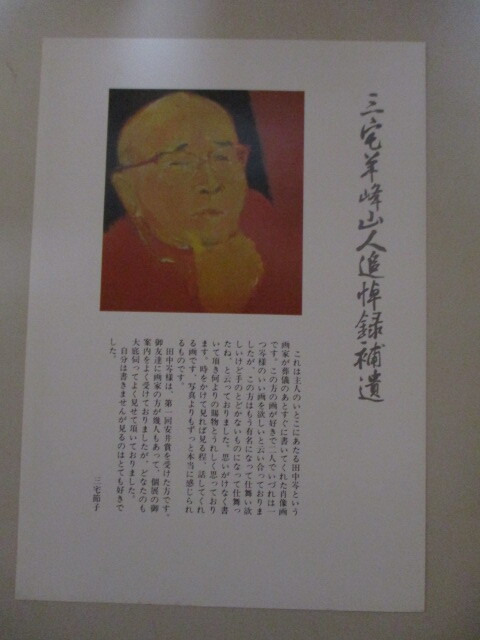 三宅羊峰山人追悼録補遺
これは主人のいとこにあたる田中岑という
画家が葬儀のあとすぐに書いてくれた肖像画
です。この方の画が好きで二人でいづれは一
つ岑様のいい画を欲しいと云い合っておりま
したが、この方はもう有名になって仕舞い欲
しいけど手のとどかないものになって仕舞っ
たね、と云っておりました。思いがけなく書
いて頂き何よりの賜物とうれしく思っており
ます。時をかけて見れば見る程、話してくれ
る画です。写真よりもずっと本当に感じられ
るものです。
田中岑様は、第一回安井賞を受けた方です。
御友達に画家の方が幾人もあって、個展の御
案内をよく受けておりましたが、どなたのも
大底伺ってよく見せて頂いておりました。
自分は書きませんが見るのはとても好きで
した。
三宅節子